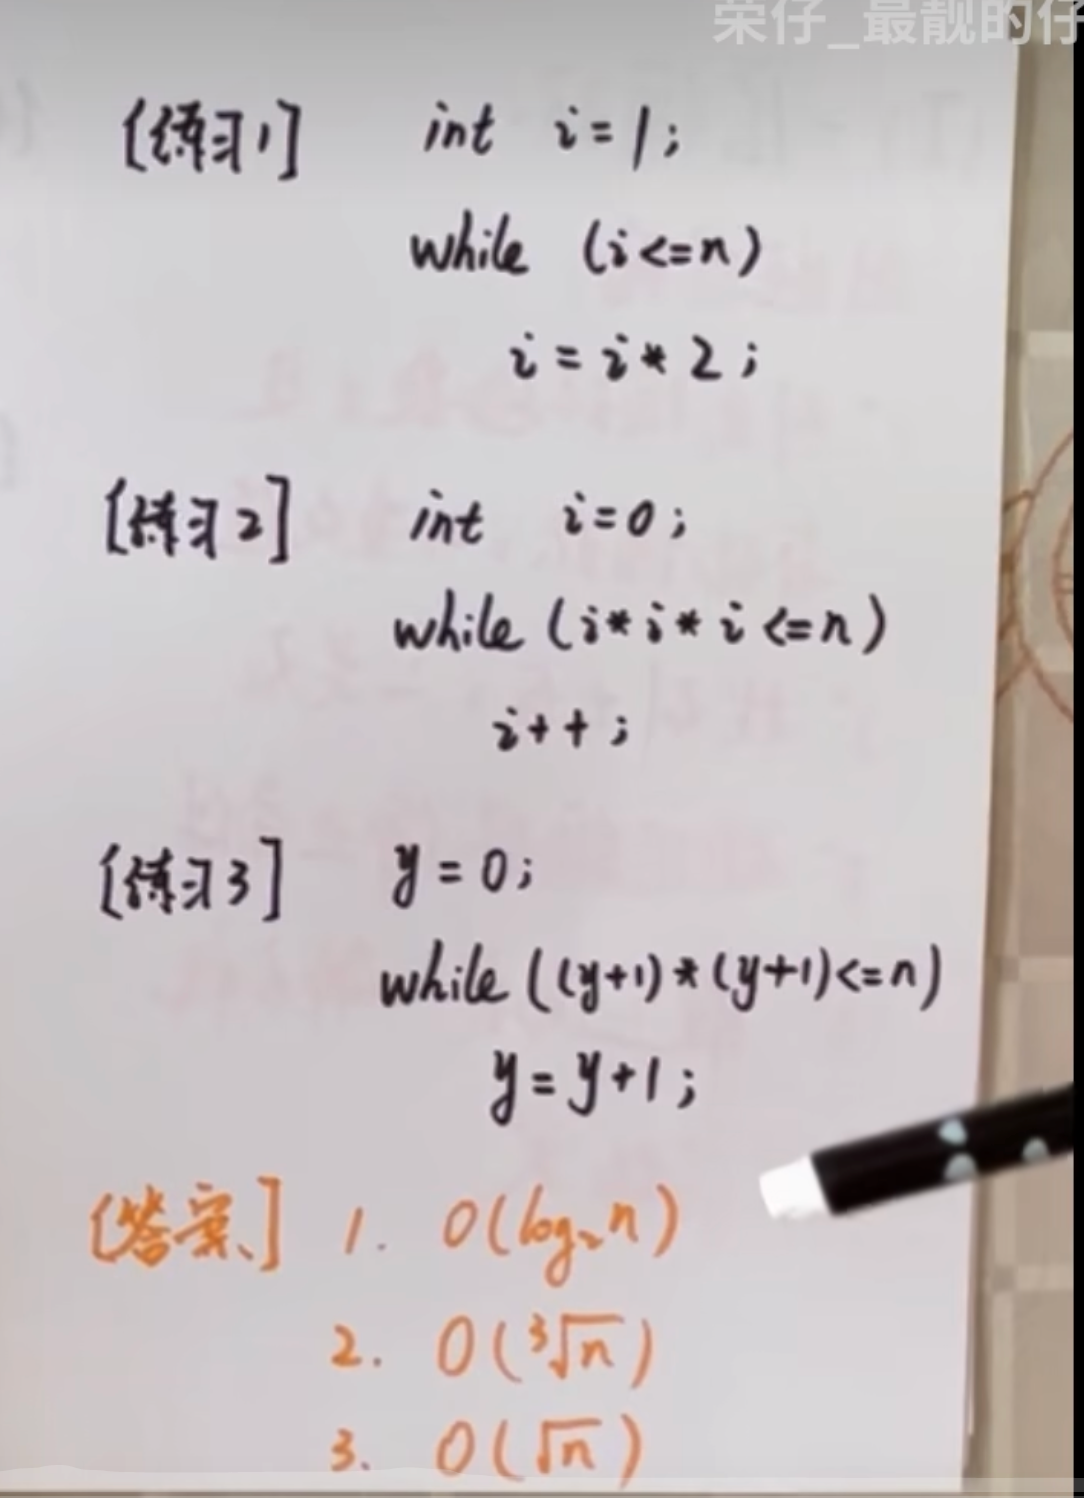 荣仔_最靓的仔
[练习1] int i=1;
while (i<=n)
i=i*2;
[练习2] int i=0;
while (i*i*i<=n)
i++;
[练习3] y=0;
while ((y+1)*(y+1)<=n)
y=y+1;
[答案] 1. O(log₂n)
2. O(³√n)
3. O(√n)